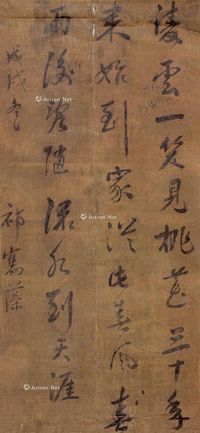 凌雲一笑見桃花三十年
來始到家從此春風春
雨後亂随流水到天涯
戊戌冬 祁寯藻
Artron.Net
Artron.Net
Artron.Net
Artron.Net
Artron.Net
Artron.Net